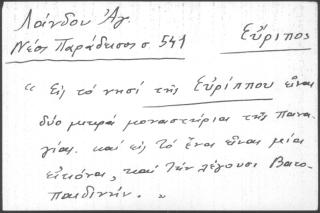 Λάνδου Ἁγ.
Νέος Παράδεισος σ. 541
Εὔριπος
“ Εἰς τό νησί τῆς Εὐρίππου εἶναι
δύο μικρά μοναστήρια τῆς Πανα-
γίας. καί εἰς τό ἕνα εἶναι μία
εἰκόνα, καί τήν λέγουσι Βατο-
παιδινήν. „